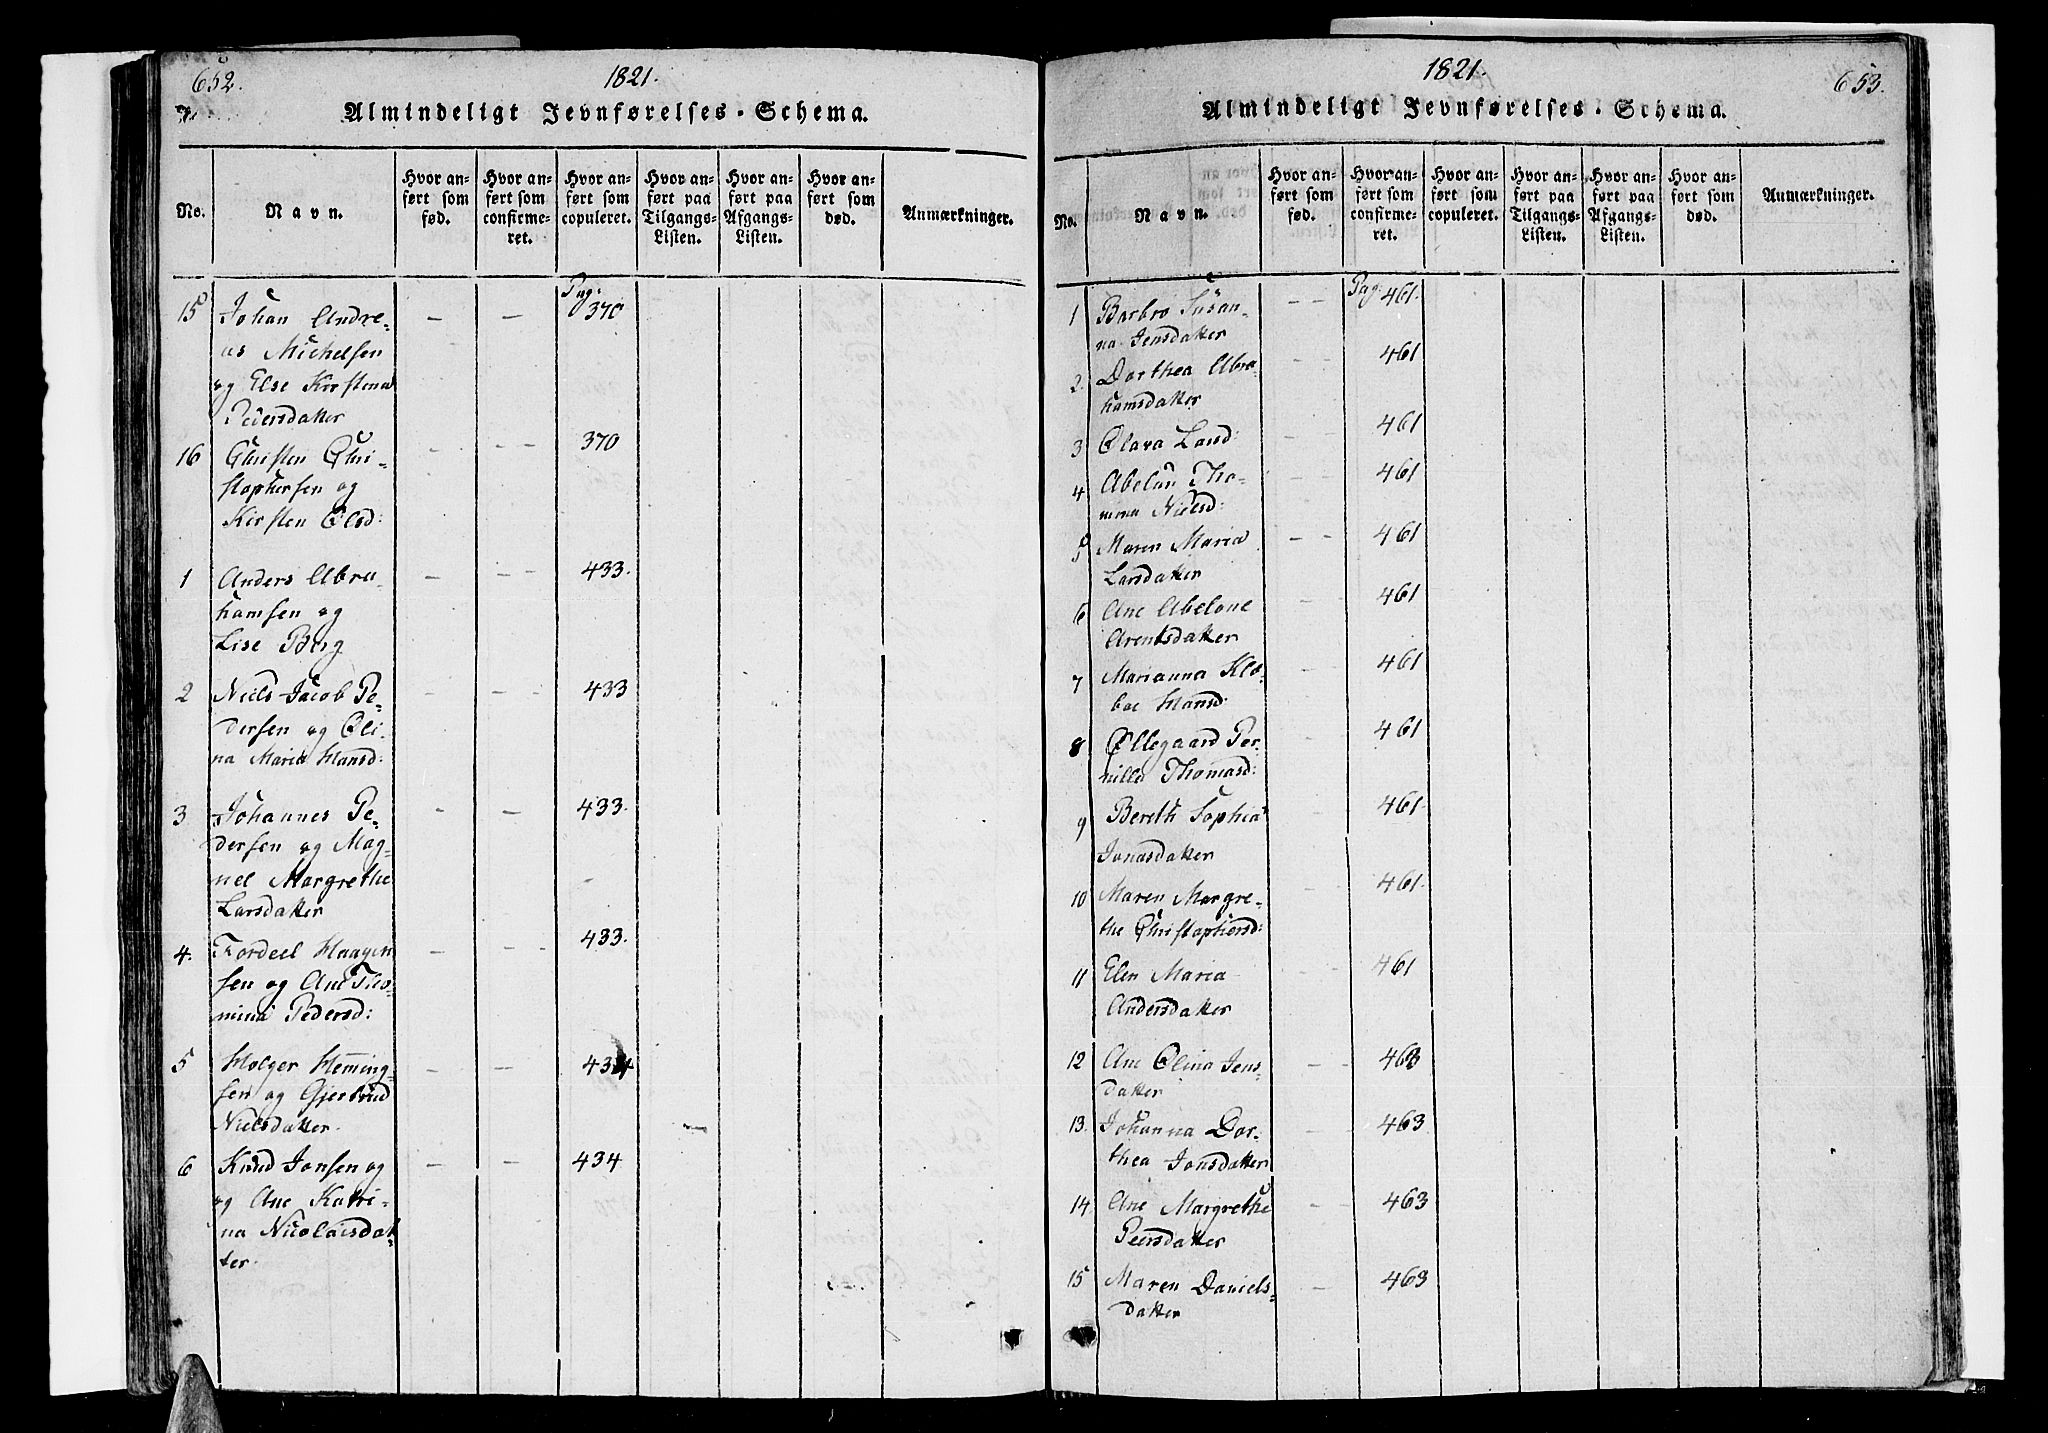 652.
1821.
Almindeligt Jevnførelses-Schema.
No.
Navn.
Hvor an-
ført som
fød.
Hvor an-
ført som
confirme-
ret.
Hvor an-
ført som
copuleret.
Hvor an-
ført paa
Tilgangs-
Listen.
Hvor an-
ført paa
Afgangs-
Listen.
Hvor an-
ført som
død.
Anmærkninger.
Pag:
15 Johan Andre- — — 370
as Michelsen
og Else Kirstena
Peiersdatter
16 Christen Chri- - - - 370
stophersen og
Kirsten Olsd:
1 Anders Abra- — - - 433.
hamsen og
Lise Berg
2 Niels Jacob Pe- - — - 433
dersen og Oli-
na Maria Hansd:
3 Johannes Pe- - — 433.
dersen og Mag-
nel Margrethe
Larsdatter
4. Fordeel Haagen — — 433.
sen og Ane Tho-
mina Pedersd:
5 Holger Heming- — -- 434
sen og Gjertrud
Nielsdatter.
6 Knud Jonsen og — — 434
og Ane Katri-
na Nicolaisdat-
ter.
653.
1821.
Almindeligt Jevnførelses-Schema.
No.
Navn.
Hvor an-
ført som
fød.
Hvor an-
ført som
confirme-
ret.
Hvor an-
ført som
copuleret.
Hvor an-
ført paa
Tilgangs-
Listen.
Hvor an-
ført paa
Afgangs-
Listen.
Hvor an-
ført som
død.
Anmærkninger.
1 Barbro Susan- — — Pag: 461.
na Jensdatter
2. Dorthea Abra- - - 461
hamsdatter
3 Clara Lasd: - - 461
4 Abelon Tho- - - 461
mina Nielsd:
5 Maren Maria — - 461
Larsdatter
6 Ane Abelone - - 461
Arentsdatter
7 Marianna Klo- - - 461
boe Hansd:
8 Ellegaard Per- - - 461
nilla Thomasd:
9 Bereth Sophia - - 461
Jonasdatter
10 Maren Margre- - - 461.
the Christophersd:
11 Elen Maria - - 461
Andersdatter
12 Ane Olina Jens- - - 463
datter
13. Johanna Dor- - - 463
thea Jonsdatter
14 Ane Margrethe - - 463
Peersdatter
15 Maren Daniels- — 463
datter